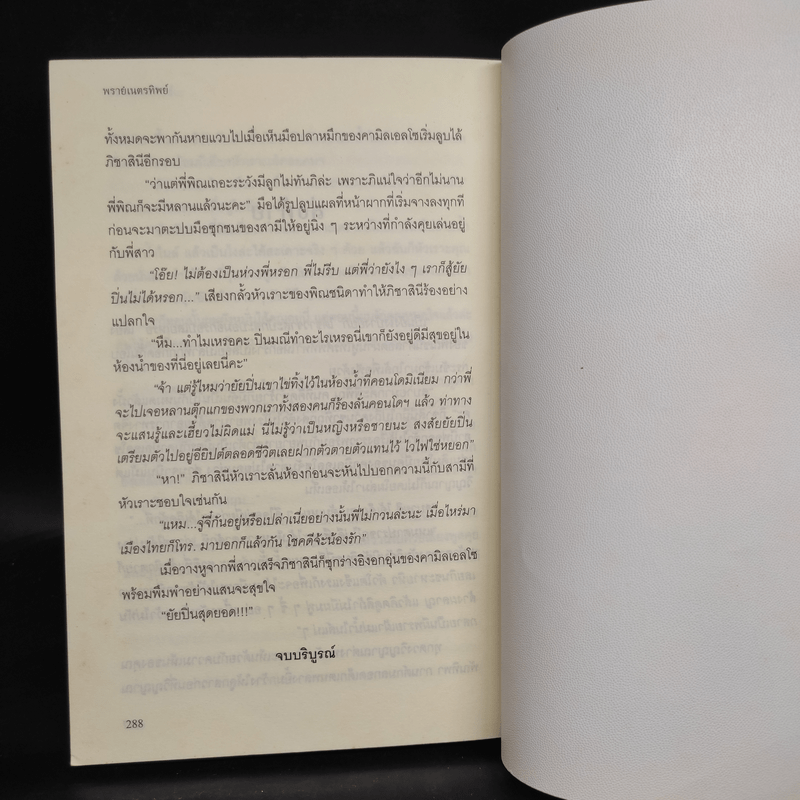 พรายเนตรทิพย์
ทั้งหมดจะพากันหายแวบไปเมื่อเห็นมือปลาหมึกของคามิลเอลโซเริ่มลูบไล้
ภิซาสินีอีกรอบ
“ว่าแต่พี่พิณเถอะระวังมีลูกไม่ทันภิล่ะ เพราะภิแน่ใจว่าอีกไม่นาน
พี่พิณก็จะมีหลานแล้วนะคะ” มือได้รูปลูบแผลที่หน้าผากที่เริ่มจางลงทุกที
ก่อนจะมาตะปบมือซุกซนของสามีให้อยู่นิ่ง ๆ ระหว่างที่กำลังคุยเล่นอยู่
กับพี่สาว
“โอ๊ย! ไม่ต้องเป็นห่วงพี่หรอก พี่ไม่รีบ แต่พี่ว่ายังไง ๆ เราก็สู้ยัย
ปิ่นไม่ได้หรอก...” เสียงกลั้วหัวเราะของพิณชนิดาทำให้ภิซาสินีร้องอย่าง
แปลกใจ
“หืม...ทำไมเหรอคะ ปิ่นมณีทำอะไรเหรอนี่เขาก็ยังอยู่ดีมีสุขอยู่ใน
ห้องน้ำของที่นี่อยู่เลยนี่คะ”
“จ้า แต่รู้ไหมว่ายัยปิ่นเขาไข่ทิ้งไว้ในห้องน้ำที่คอนโดมิเนียม กว่าพี่
จะไปเจอหลานตุ๊กแกของพวกเราทั้งสองคนก็ร้องลั่นคอนโดฯ แล้ว ท่าทาง
จะแสนรู้และเฮี้ยวไม่ผิดแม่ นี่ไม่รู้ว่าเป็นหญิงหรือชายนะ สงสัยยัยปิ่น
เตรียมตัวไปอยู่อียิปต์ตลอดชีวิตเลยฝากตัวตายตัวแทนไว้ ไวไฟใช่หยอก”
“หา!” ภิซาสินีหัวเราะลั่นห้องก่อนจะหันไปบอกความนี้กับสามีที่
หัวเราะชอบใจเช่นกัน
“แหม...จู๋จี๋กันอยู่หรือเปล่าเนี่ยอย่างนั้นพี่ไม่กวนล่ะนะ เมื่อไหร่มา
เมืองไทยก็โทร. มาบอกก็แล้วกัน โชคดีจ้ะน้องรัก”
เมื่อวางหูจากพี่สาวเสร็จภิซาสินีก็ซุกร่างอิงอกอุ่นของคามิลเอลโซ
พร้อมพึมพำอย่างแสนจะสุขใจ
“ยัยปิ่นสุดยอด!!!”
จบบริบูรณ์
288